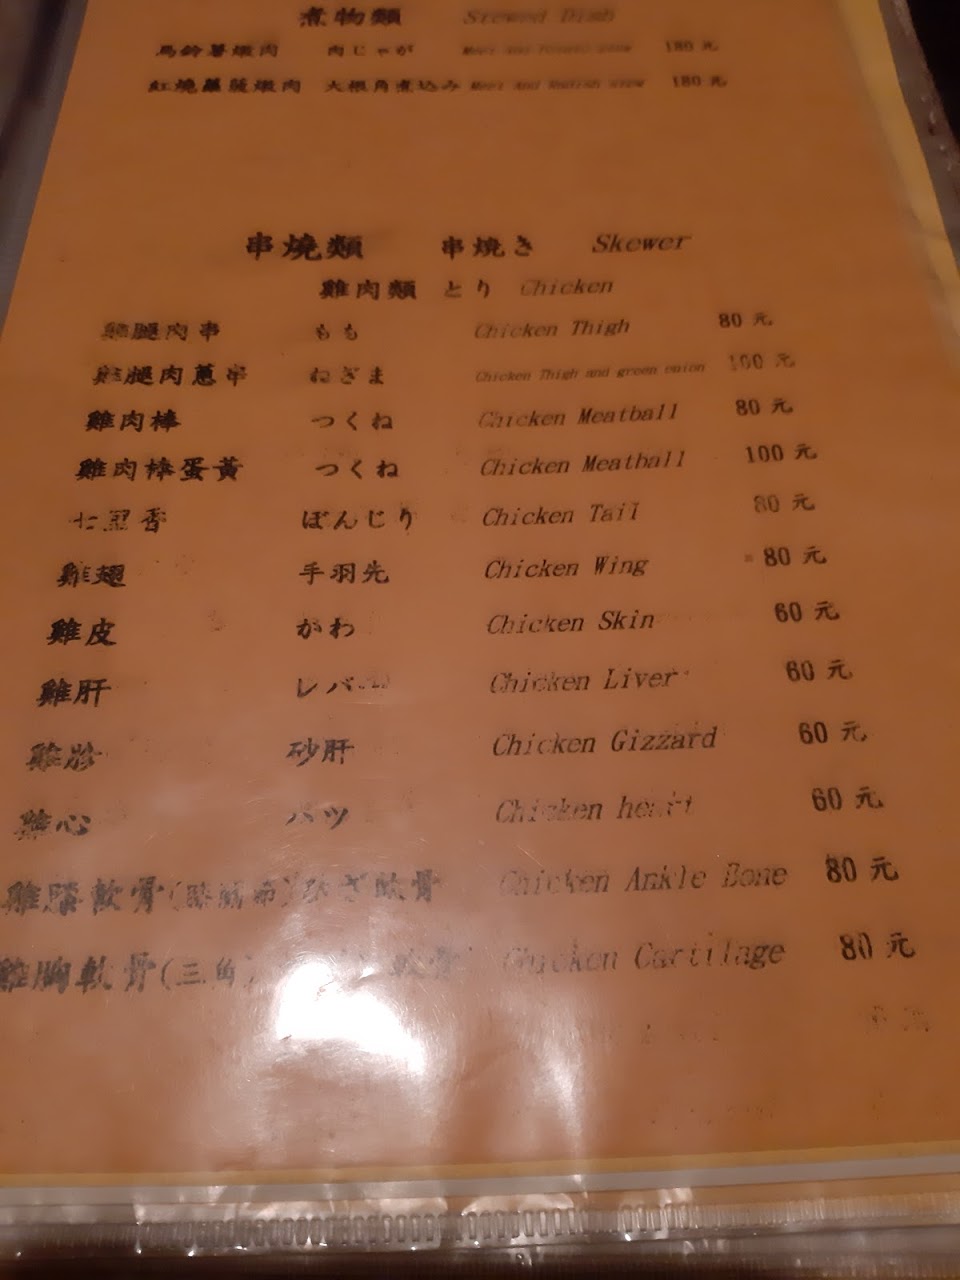 煮物類 Stewed Dish
馬鈴薯燉肉 肉じゃが Meet And Potato stew 180 元
紅燒蘿蔔燉肉 大根角煮込み Meet And Radish stew 180 元
串燒類 串焼き Skewer
雞肉類 とり Chicken
雞腿肉串 もも Chicken Thigh 80 元
雞腿肉蔥串 ねぎま Chicken Thigh and green onion 100 元
雞肉棒 つくね Chicken Meatball 80 元
雞肉棒蛋黃 つくね Chicken Meatball 100 元
七里香 ぼんじり Chicken Tail 80 元
雞翅 手羽先 Chicken Wing 80 元
雞皮 がわ Chicken Skin 60 元
雞肝 レバー Chicken Liver 60 元
雞胗 砂肝 Chicken Gizzard 60 元
雞心 ハツ Chicken heart 60 元
雞膝軟骨 ひざ軟骨 Chicken Ankle Bone 80 元
雞胸軟骨(三角) 軟骨 Chicken Cartilage 80 元